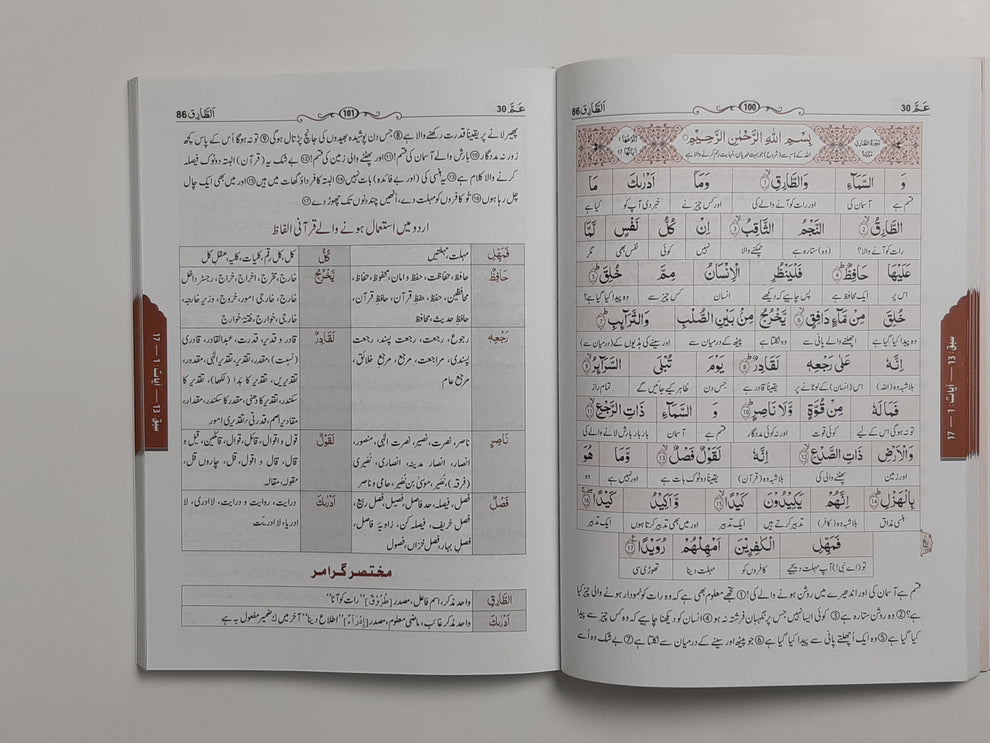 عَمَّ 30
100
اَلطَّارِق 86
سُوْرَةُ الطَّارِقِ مَكِّيَّةٌ
بِسْمِ اللهِ الرَّحْمٰنِ الرَّحِيْمِ
اللہ کے نام سے (شروع) جو بہت مہربان، نہایت رحم کرنے والا ہے
وَ السَّمَآءِ وَالطَّارِقِ ① وَمَآ اَدْرٰىكَ مَا
قسم ہے آسمان کی اور رات کو آنے والے کی اور کس چیز نے خبر دی آپ کو کیا ہے
الطَّارِقُ ② النَّجْمُ الثَّاقِبُ ③ اِنْ كُلُّ نَفْسٍ لَّمَّا
رات کو آنے والا؟ (وہ) ستارہ ہے چمکنے والا نہیں کوئی نفس بھی مگر
عَلَيْهَا حَافِظٌ ④ فَلْيَنْظُرِ الْاِنْسَانُ مِمَّ خُلِقَ ⑤
اس پر ایک محافظ ہے پس چاہیے کہ دیکھے انسان کس چیز سے وہ پیدا کیا گیا ہے؟
خُلِقَ مِنْ مَّآءٍ دَافِقٍ ⑥ يَّخْرُجُ مِنْۢ بَيْنِ الصُّلْبِ وَالتَّرَآئِبِ ⑦
وہ پیدا کیا گیا ہے اچھلنے والے پانی سے وہ نکلتا ہے پیٹھ کے درمیان سے اور سینے کی ہڈیوں کے (درمیان سے)
اِنَّهٗ عَلٰى رَجْعِهٖ لَقَادِرٌ ⑧ يَوْمَ تُبْلَى السَّرَآئِرُ ⑨
بلاشبہ وہ (اللہ) اس (انسان) کے لوٹانے پر یقیناً قادر ہے جس دن ظاہر کیے جائیں گے تمام راز
فَمَا لَهٗ مِنْ قُوَّةٍ وَّلَا نَاصِرٍ ⑩ وَ السَّمَآءِ ذَاتِ الرَّجْعِ ⑪
تو نہ ہو گی اس کے لیے کوئی قوت اور نہ کوئی مددگار قسم ہے آسمان بار بار بارش لانے والے کی
وَالْاَرْضِ ذَاتِ الصَّدْعِ ⑫ اِنَّهٗ لَقَوْلٌ فَصْلٌ ⑬ وَّمَا هُوَ
اور زمین پھٹنے والی کی بلاشبہ وہ (قرآن) یقیناً دو ٹوک بات ہے اور نہیں ہے وہ
بِالْهَزْلِ ⑭ اِنَّهُمْ يَكِيْدُوْنَ كَيْدًا ⑮ وَّاَكِيْدُ كَيْدًا ⑯
ہنسی مذاق بلاشبہ وہ (کافر) تدبیر کرتے ہیں ایک تدبیر اور میں بھی تدبیر کرتا ہوں ایک تدبیر
فَمَهِّلِ الْكٰفِرِيْنَ اَمْهِلْهُمْ رُوَيْدًا ⑰
تو (اے نبی!) آپ مہلت دیجیے کافروں کو مہلت دینا تھوڑی سی
قسم ہے آسمان کی اور اندھیرے میں روشن ہونے والی کی! ① تجھے معلوم بھی ہے کہ وہ رات کو نمودار ہونے والی چیز کیا
ہے؟ ② وہ روشن ستارہ ہے ③ کوئی ایسا نہیں جس پر نگہبان فرشتہ نہ ہو ④ انسان کو دیکھنا چاہیے کہ وہ کس چیز سے پیدا
کیا گیا ہے ⑤ وہ ایک اُچھلتے پانی سے پیدا کیا گیا ہے ⑥ جو پیٹھ اور سینے کے درمیان سے نکلتا ہے ⑦ بے شک وہ اُسے
سبق: 13 — آیات: 1 — 17
عَمَّ 30
101
اَلطَّارِق 86
پھیر لانے پر یقیناً قدرت رکھنے والا ہے ⑧ جس دن پوشیدہ بھیدوں کی جانچ پڑتال ہوگی ⑨ تو نہ ہوگا اُس کے پاس کچھ
زور نہ مددگار ⑩ بارش والے آسمان کی قسم! ⑪ اور پھٹنے والی زمین کی قسم! ⑫ بے شک یہ (قرآن) البتہ دو ٹوک فیصلہ
کرنے والا کلام ہے ⑬ یہ ہنسی کی (اور بے فائدہ) بات نہیں ⑭ البتہ کافر داؤ گھات میں ہیں ⑮ اور میں بھی ایک چال
چل رہا ہوں ⑯ تُو کافروں کو مہلت دے، اُنھیں چند دنوں تک چھوڑ دے ⑰
اردو میں استعمال ہونے والے قرآنی الفاظ
فَمَهِّلِ مہلت، مہلتیں كُلُّ کل، کل رقم، کلیات، کلیہ، عقل کل
حَافِظٌ حافظ، حفاظت، حفظ و امان، محفوظ، حفاظ،
محافظین، حفظ، حفظِ قرآن، حافظِ قرآن،
حافظِ حدیث، محافظ
يَّخْرُجُ خارج، مخرج، اخراج، خراج، رجسٹر داخل
خارج، خارجی امور، خروج، وزیر خارجہ،
خارجی، خوارج، فتنہ خوارج
رَجْعِهٖ رجوع، رجعت، رجعت پسند، رجعت
پسندی، مراجعت، مرجع، مرجع خلائق،
مرجع عام
لَقَادِرٌ قادر و قدیر، قدرت، عبدالقادر، قادری
(نسبت)، مقدر، تقدیر، تقدیر الٰہی، مقدور،
تقدیریں، تقدیر کا بَدا (لکھا)، تقدیر کا
سکندر، تقدیر کا دھنی، مقدر کا سکندر، مقدار،
مقادیر اھم، قدرتی، تقدیری امور
نَاصِرٍ ناصر، نصرت، نصیر، نصرت الٰہی، منصور،
انصار، انصار مدینہ، انصاری، نُصَیری
(فرقہ)، نُصَیر، موسیٰ بن نصیر، حامی و ناصر
لَقَوْلٌ قول و اقوال، قائل، قوال، قائلین، قیل و
قال، قال و اقول، قل، چاروں قل،
مقولہ، مقالہ
فَصْلٌ فصل، فیصلہ، حد فاصل، فصیل، فصل ربیع،
فصل خریف، فیصلہ کن، زاویۂ فاصل،
فصل بہار، فصل خزاں، فصول
اَدْرٰىكَ درایت، روایت و درایت، لا ادری، لا
ادریا، لا ادریّت
مختصر گرامر
الطَّارِقِ واحد مذکر، اسم فاعل، مصدر [طُرُوْقٌ] "رات کو آنا"
اَدْرٰىكَ واحد مذکر غائب، ماضی معلوم، مصدر [اِدْرَاءٌ] "اطلاع دینا" آخر میں كَ ضمیر مفعول بہ ہے
سبق: 13 — آیات: 1 — 17